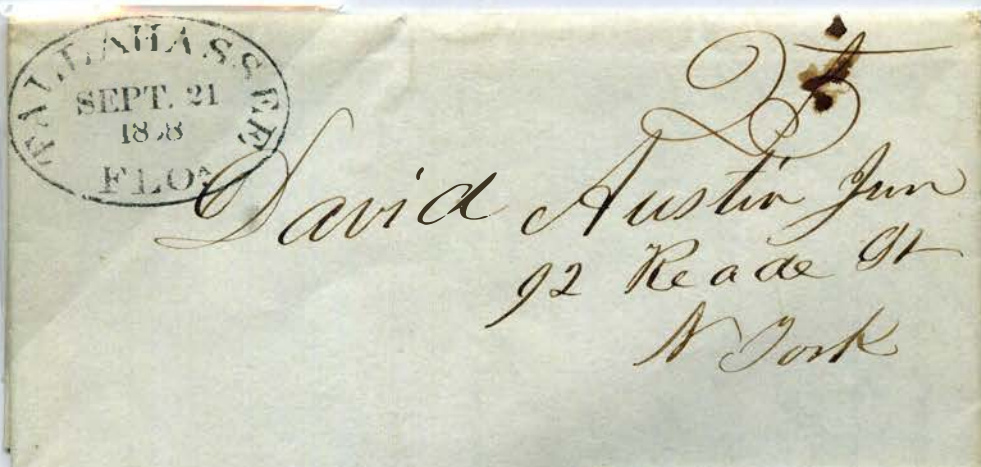 TALLAHASSEE
SEPT. 21
1838
FLOA
25
David Austin Jun
92 Reade St
N York